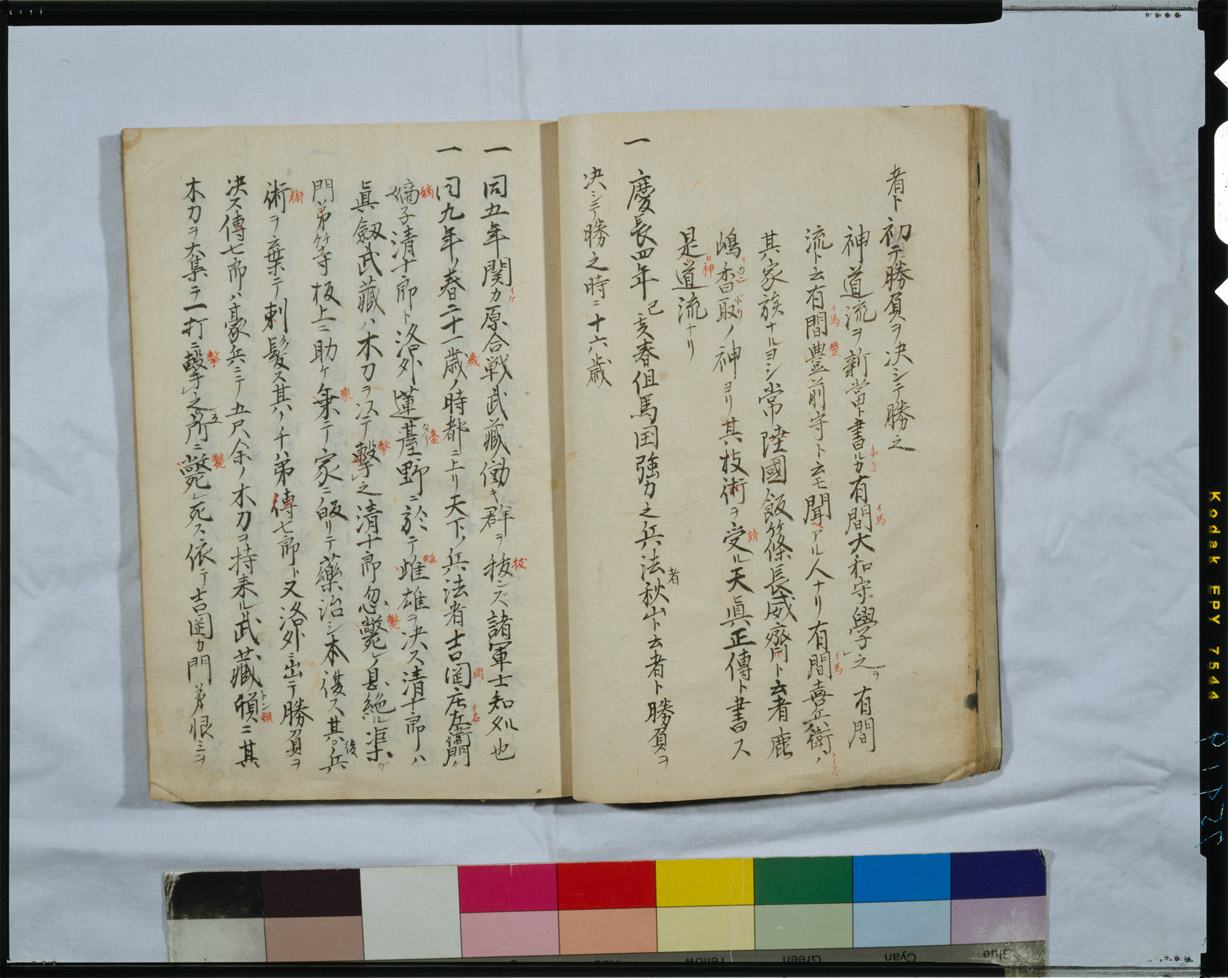 者ト初テ勝負ヲ決シテ勝之
神道流ヲ新當ト書ルカ有間大和守學之ヲ有間
流ト云有間豊前守ト云モ聞アル人ナリ有間喜兵衛ハ
其家族ナルヨシ常陸國飯篠長威齊ト云者鹿
嶋香取ノ神ヨリ其技術ヲ受ル天眞正傳ト書ス
是道流ナリ
一慶長四年己亥春但馬国強力之兵法者秋山ト云者ト勝負ヲ
決シテ勝之時ニ十六歳
一同五年関カ原合戦武藏働キ群ヲ抜ンズ諸軍士知処也
一同九年ノ春二十一歳ノ時都ニ上リ天下ノ兵法者吉岡庄左衛門カ
嫡子清十郎ト洛外蓮䑓野ニ於テ雌雄ヲ決ス清十郎ハ
眞劔武藏ハ木刀ヲ以テ擊之清十郎忽斃レ息絶
門弟等板上ニ助ケ乗テ家ニ皈リテ藥治シ本復ス其後兵
術ヲ棄テ剃髪ス其ハチ弟傳七郎ト又洛外ニ出テ勝負ヲ
決ス傳七郎ハ豪兵ニテ五尺余ノ木刀ヲ持来ル武藏頓ニ其
木刀ヲ奪テ一打ニ擊之所ニ斃レ死ス依テ吉岡カ門弟恨ミヲ
Kodak EPY 7544
Yellow
Green
Cyan
Blue